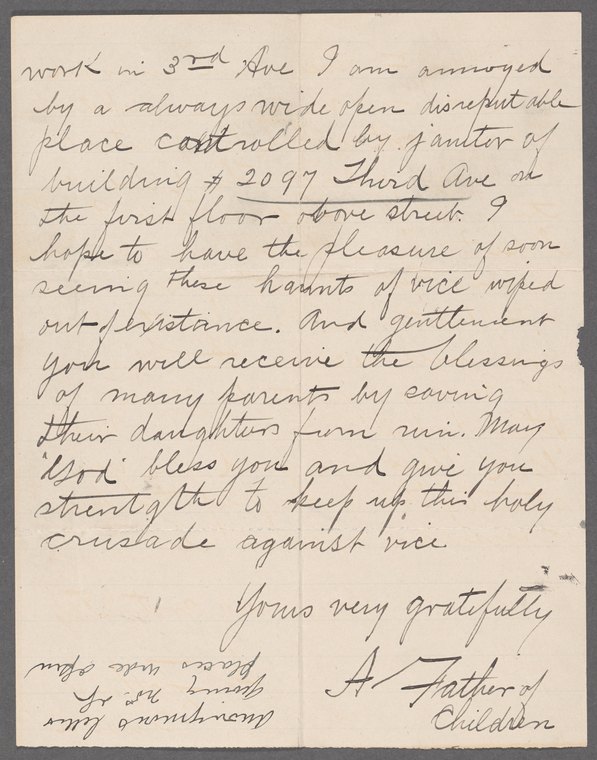 work in 3rd Ave I am annoyed
by a always wide open disreputable
place controlled by janitor of
building # 2097 Third Ave on
the first floor above street. I
hope to have the pleasure of soon
seeing these haunts of vice wiped
out of existance. And gentlement
you will receive the blessings
of many parents by saving
their daughters from ruin. May
"God" bless you and give you
strentgth to keep up this holy
crusade against vice
Yours very gratefully
A Father of
Children
Anonymous letter
giving nos. of
places wide open